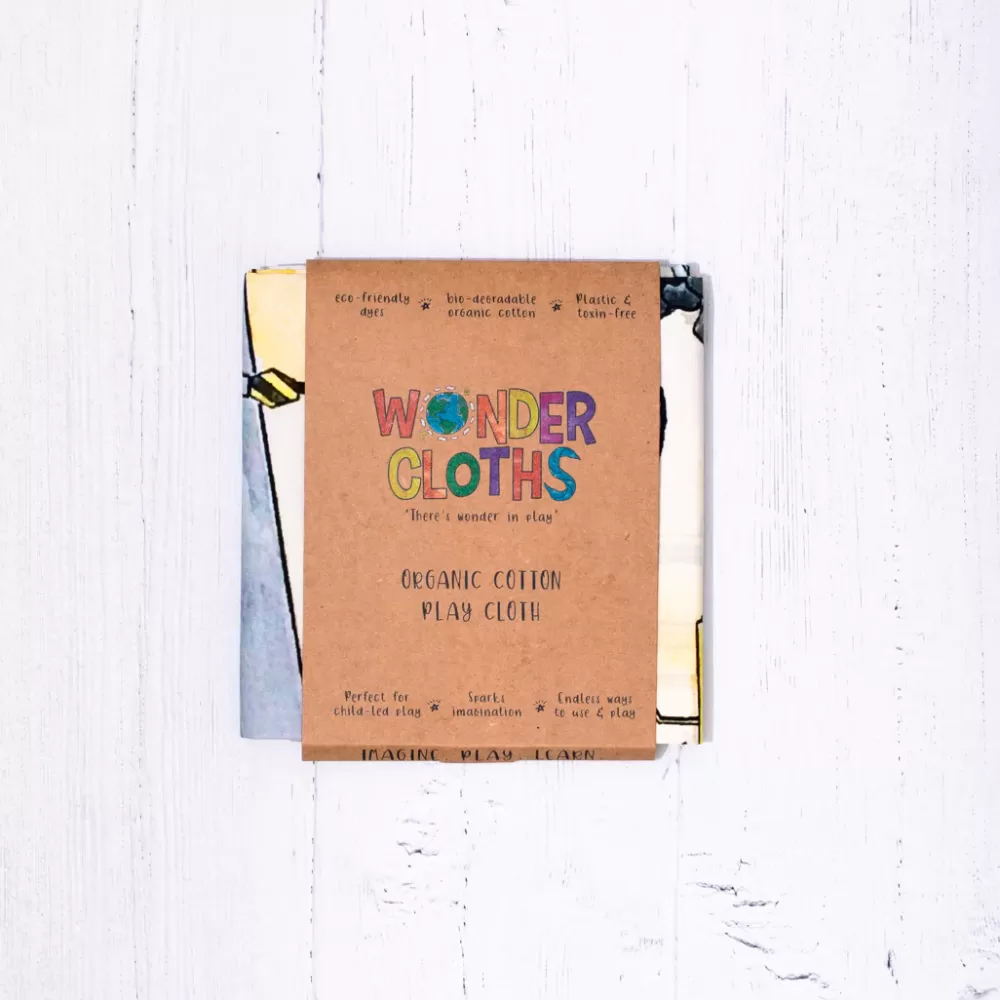 eco-friendly dyes
bio-degradable organic cotton
Plastic & toxin-free
WONDER
CLOTHS
"There's wonder in play"
ORGANIC COTTON
PLAY CLOTH
Perfect for child-led play
Sparks imagination
Endless ways to use & play
IMAGINE PLAY LEARN